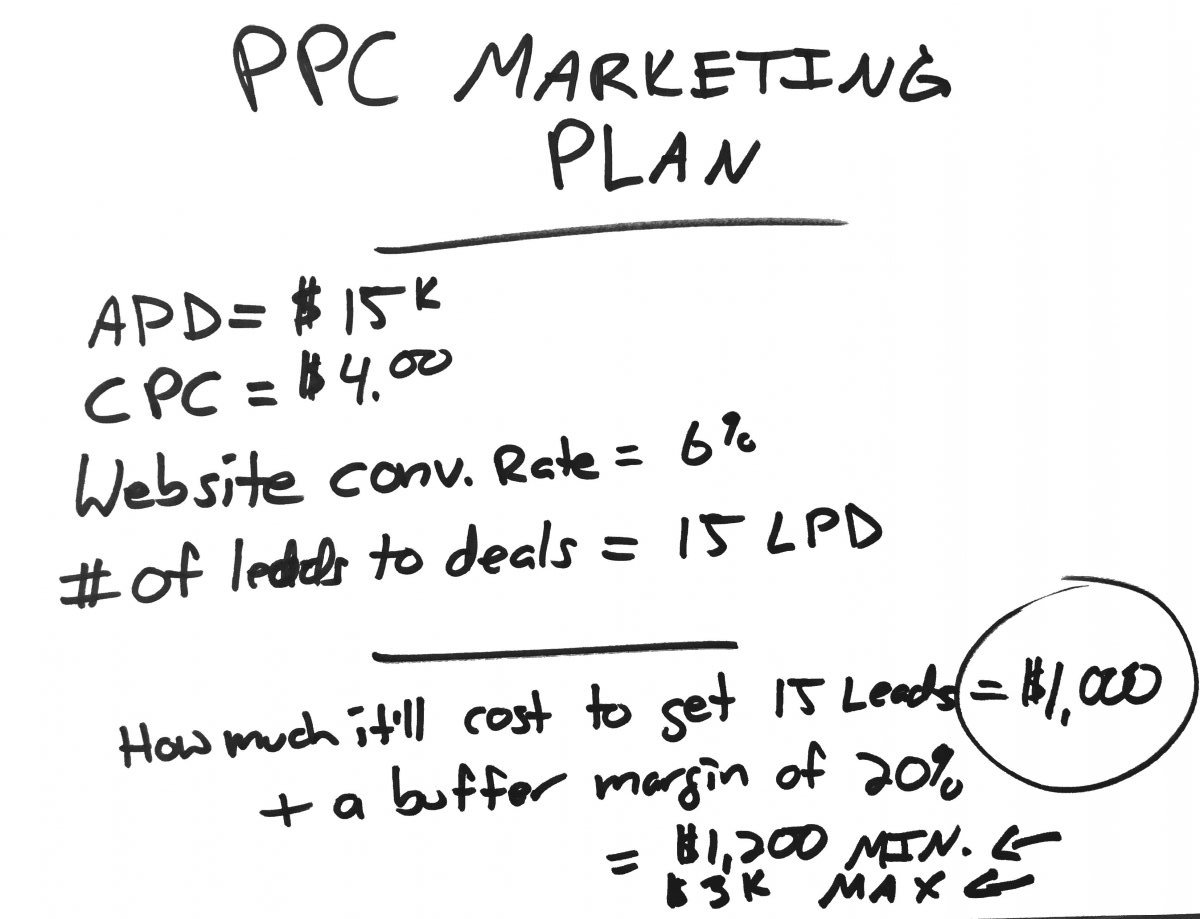 PPC MARKETING
PLAN
APD = $15K
CPC = $4.00
Website conv. Rate = 6%
# of leads to deals = 15 LPD
How much it'll cost to get 15 Leads = $1,000
+ a buffer margin of 20%
= $1,200 MIN. ←
$3K MAX ←